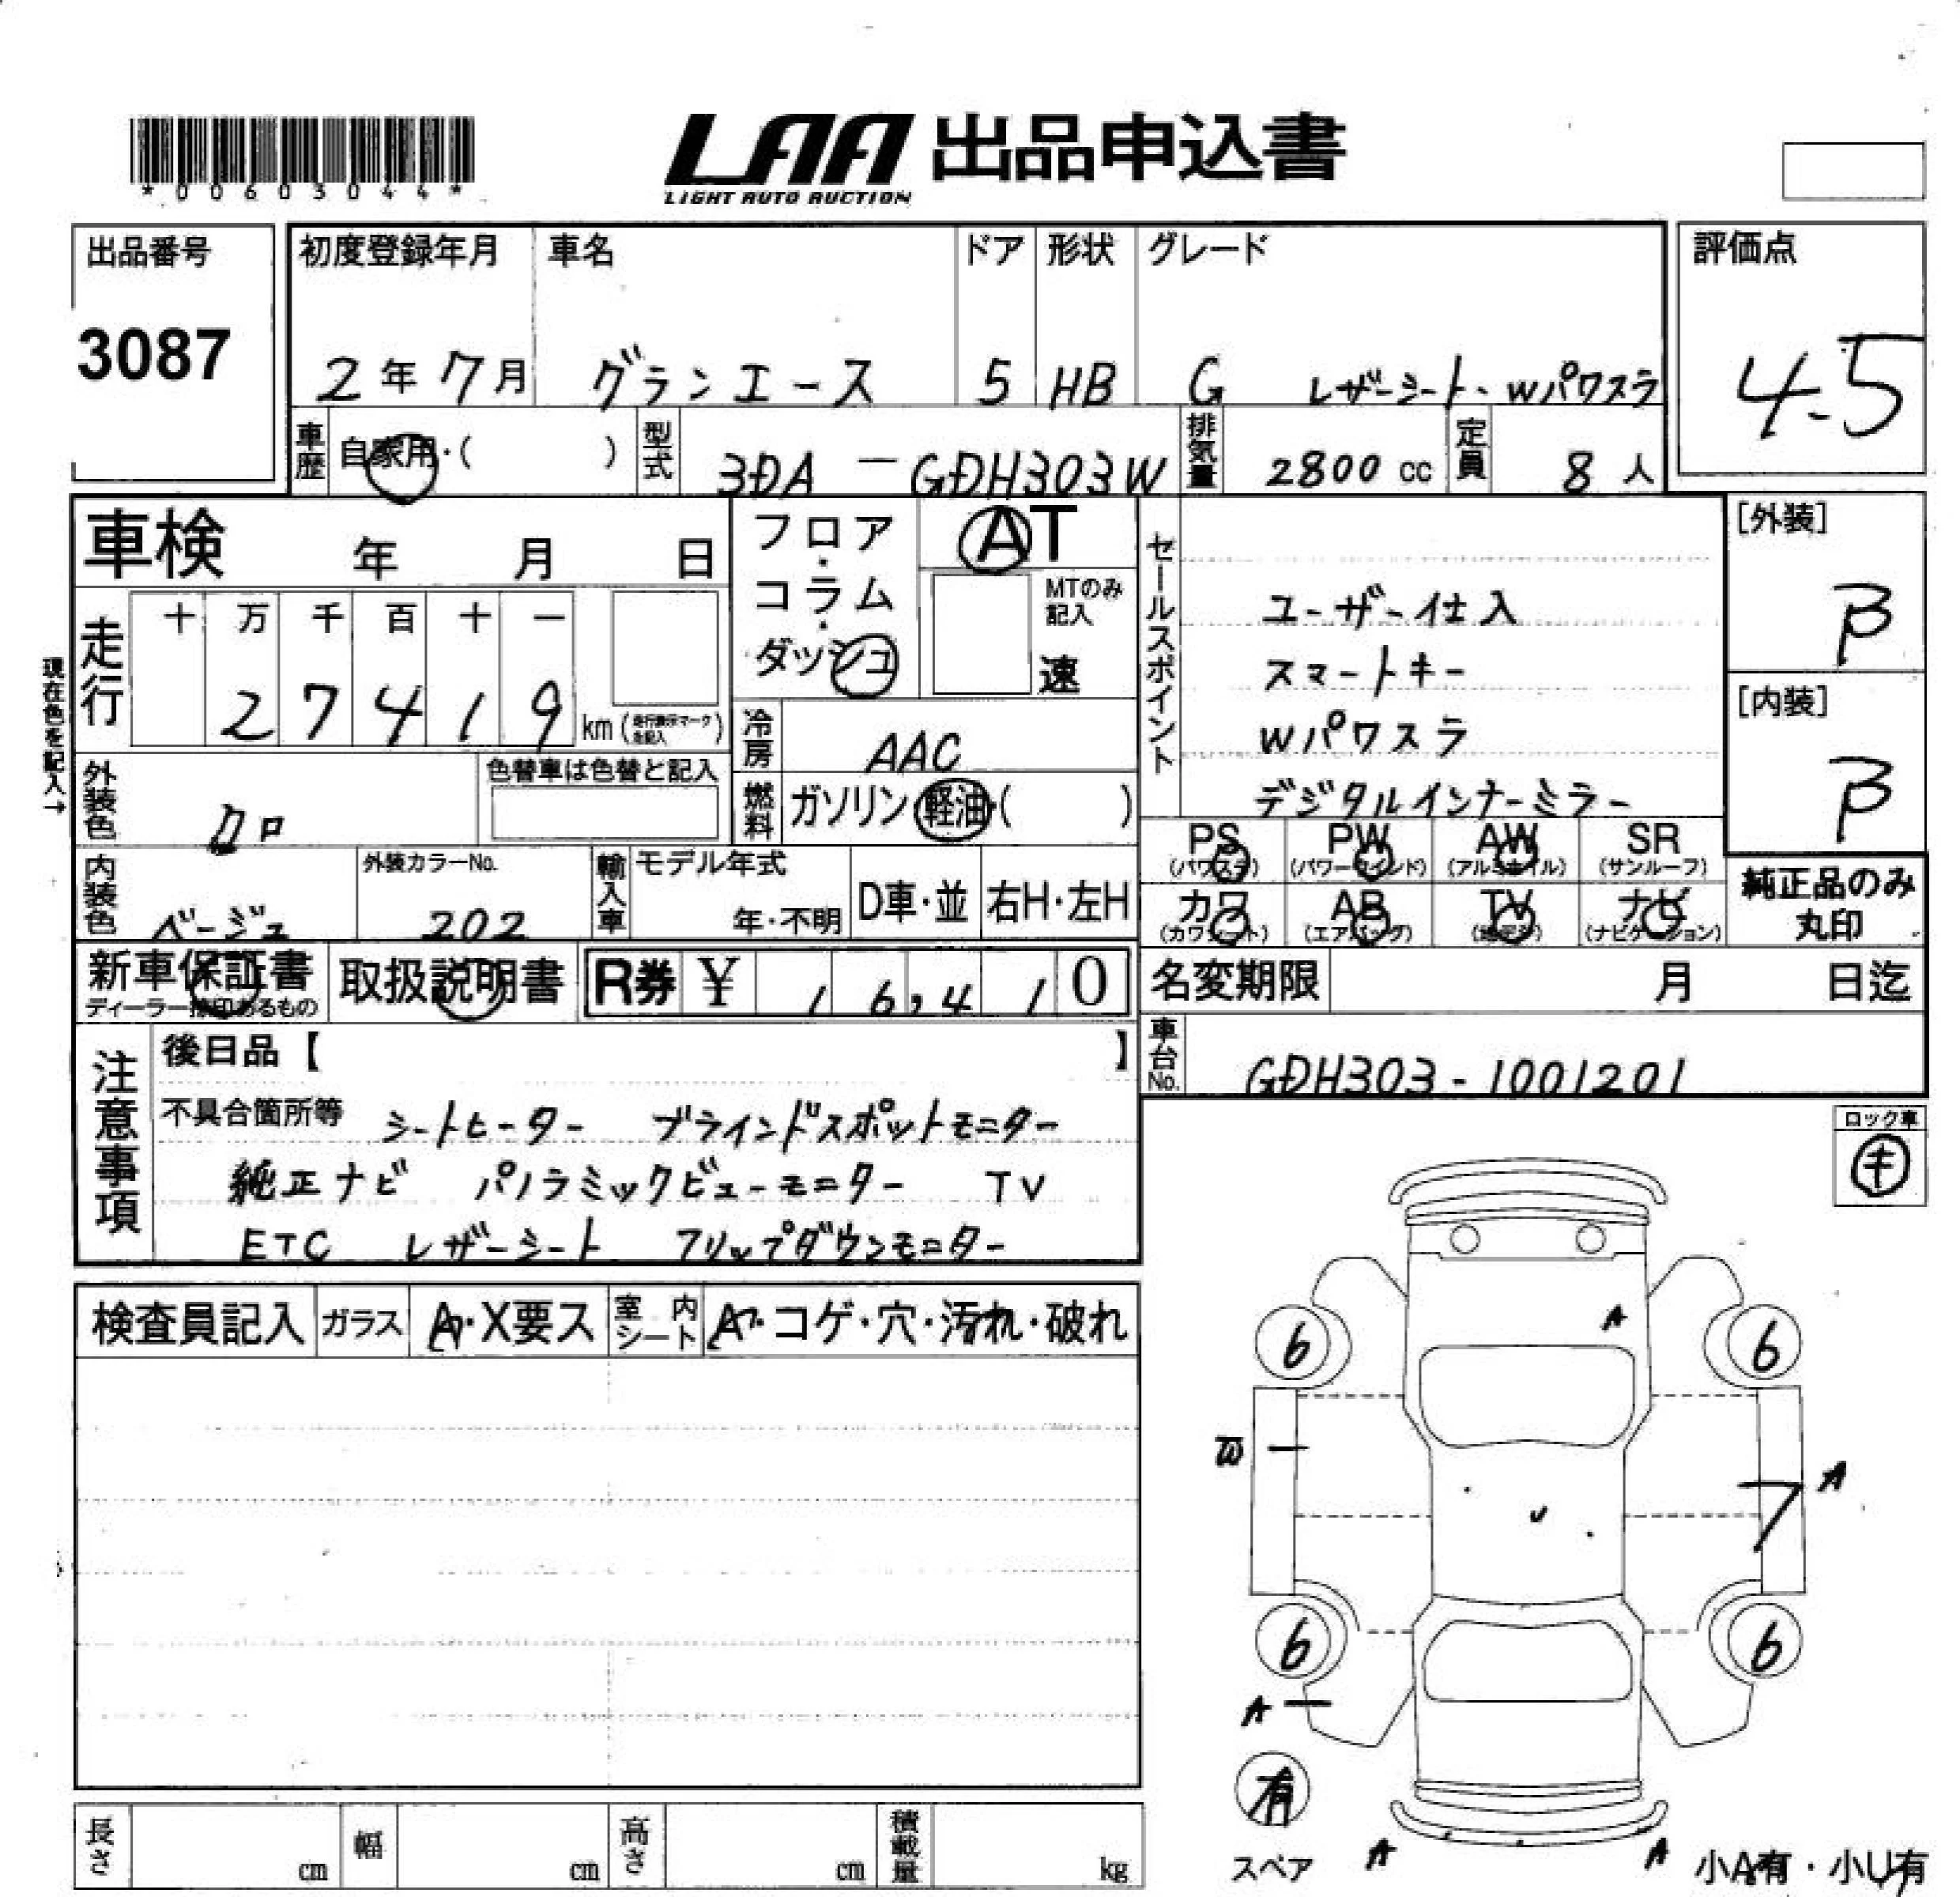 *00603044*
LAA 出品申込書
LIGHT AUTO AUCTION
出品番号
3087
初度登録年月 車名 ドア 形状 グレード 評価点
2年 7月 グランエース 5 HB G レザーシート・Wパワスラ 4.5
車歴 自家用・( ) 型式 3DA-GDH303W 排気量 2800 cc 定員 8人
車検 年 月 日
フロア・コラム・ダッシュ
AT
MTのみ記入
速
セールスポイント
ユーザー仕入
スマートキー
Wパワスラ
デジタルインナーミラー
[外装]
B
[内装]
B
現在色を記入→
走行 十 万 千 百 十 一
2 7 4 1 9 km (走行表示マークを記入)
冷房 AAC
燃料 ガソリン 軽油・( )
外装色 クロ 色替車は色替と記入
内装色 ベージュ 外装カラーNo. 202
輸入車 モデル年式 年・不明 D車・並 右H・左H
PS (パワステ) PW (パワーウインド) AW (アルミホイル) SR (サンルーフ)
カワ (カワシート) AB (エアバッグ) TV (地デジ) ナビ (ナビゲーション)
純正品のみ
丸印
新車保証書 ディーラー捺印あるもの 取扱説明書 R券 ¥ 16,410
名変期限 月 日迄
車台No. GDH303-1001201
注意事項
後日品【 】
不具合箇所等 シートヒーター ブラインドスポットモニター
純正ナビ パノラミックビューモニター TV
ETC レザーシート フリップダウンモニター
ロック車
キ
検査員記入 ガラス A・X要ス 室内シート A・コゲ・穴・汚れ・破れ
A
6 6
W A
U
6 6
A
有
スペア A A 小A有・小U有
長さ cm 幅 cm 高さ cm 積載量 kg